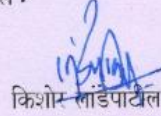 किशोर लांडेपाटील